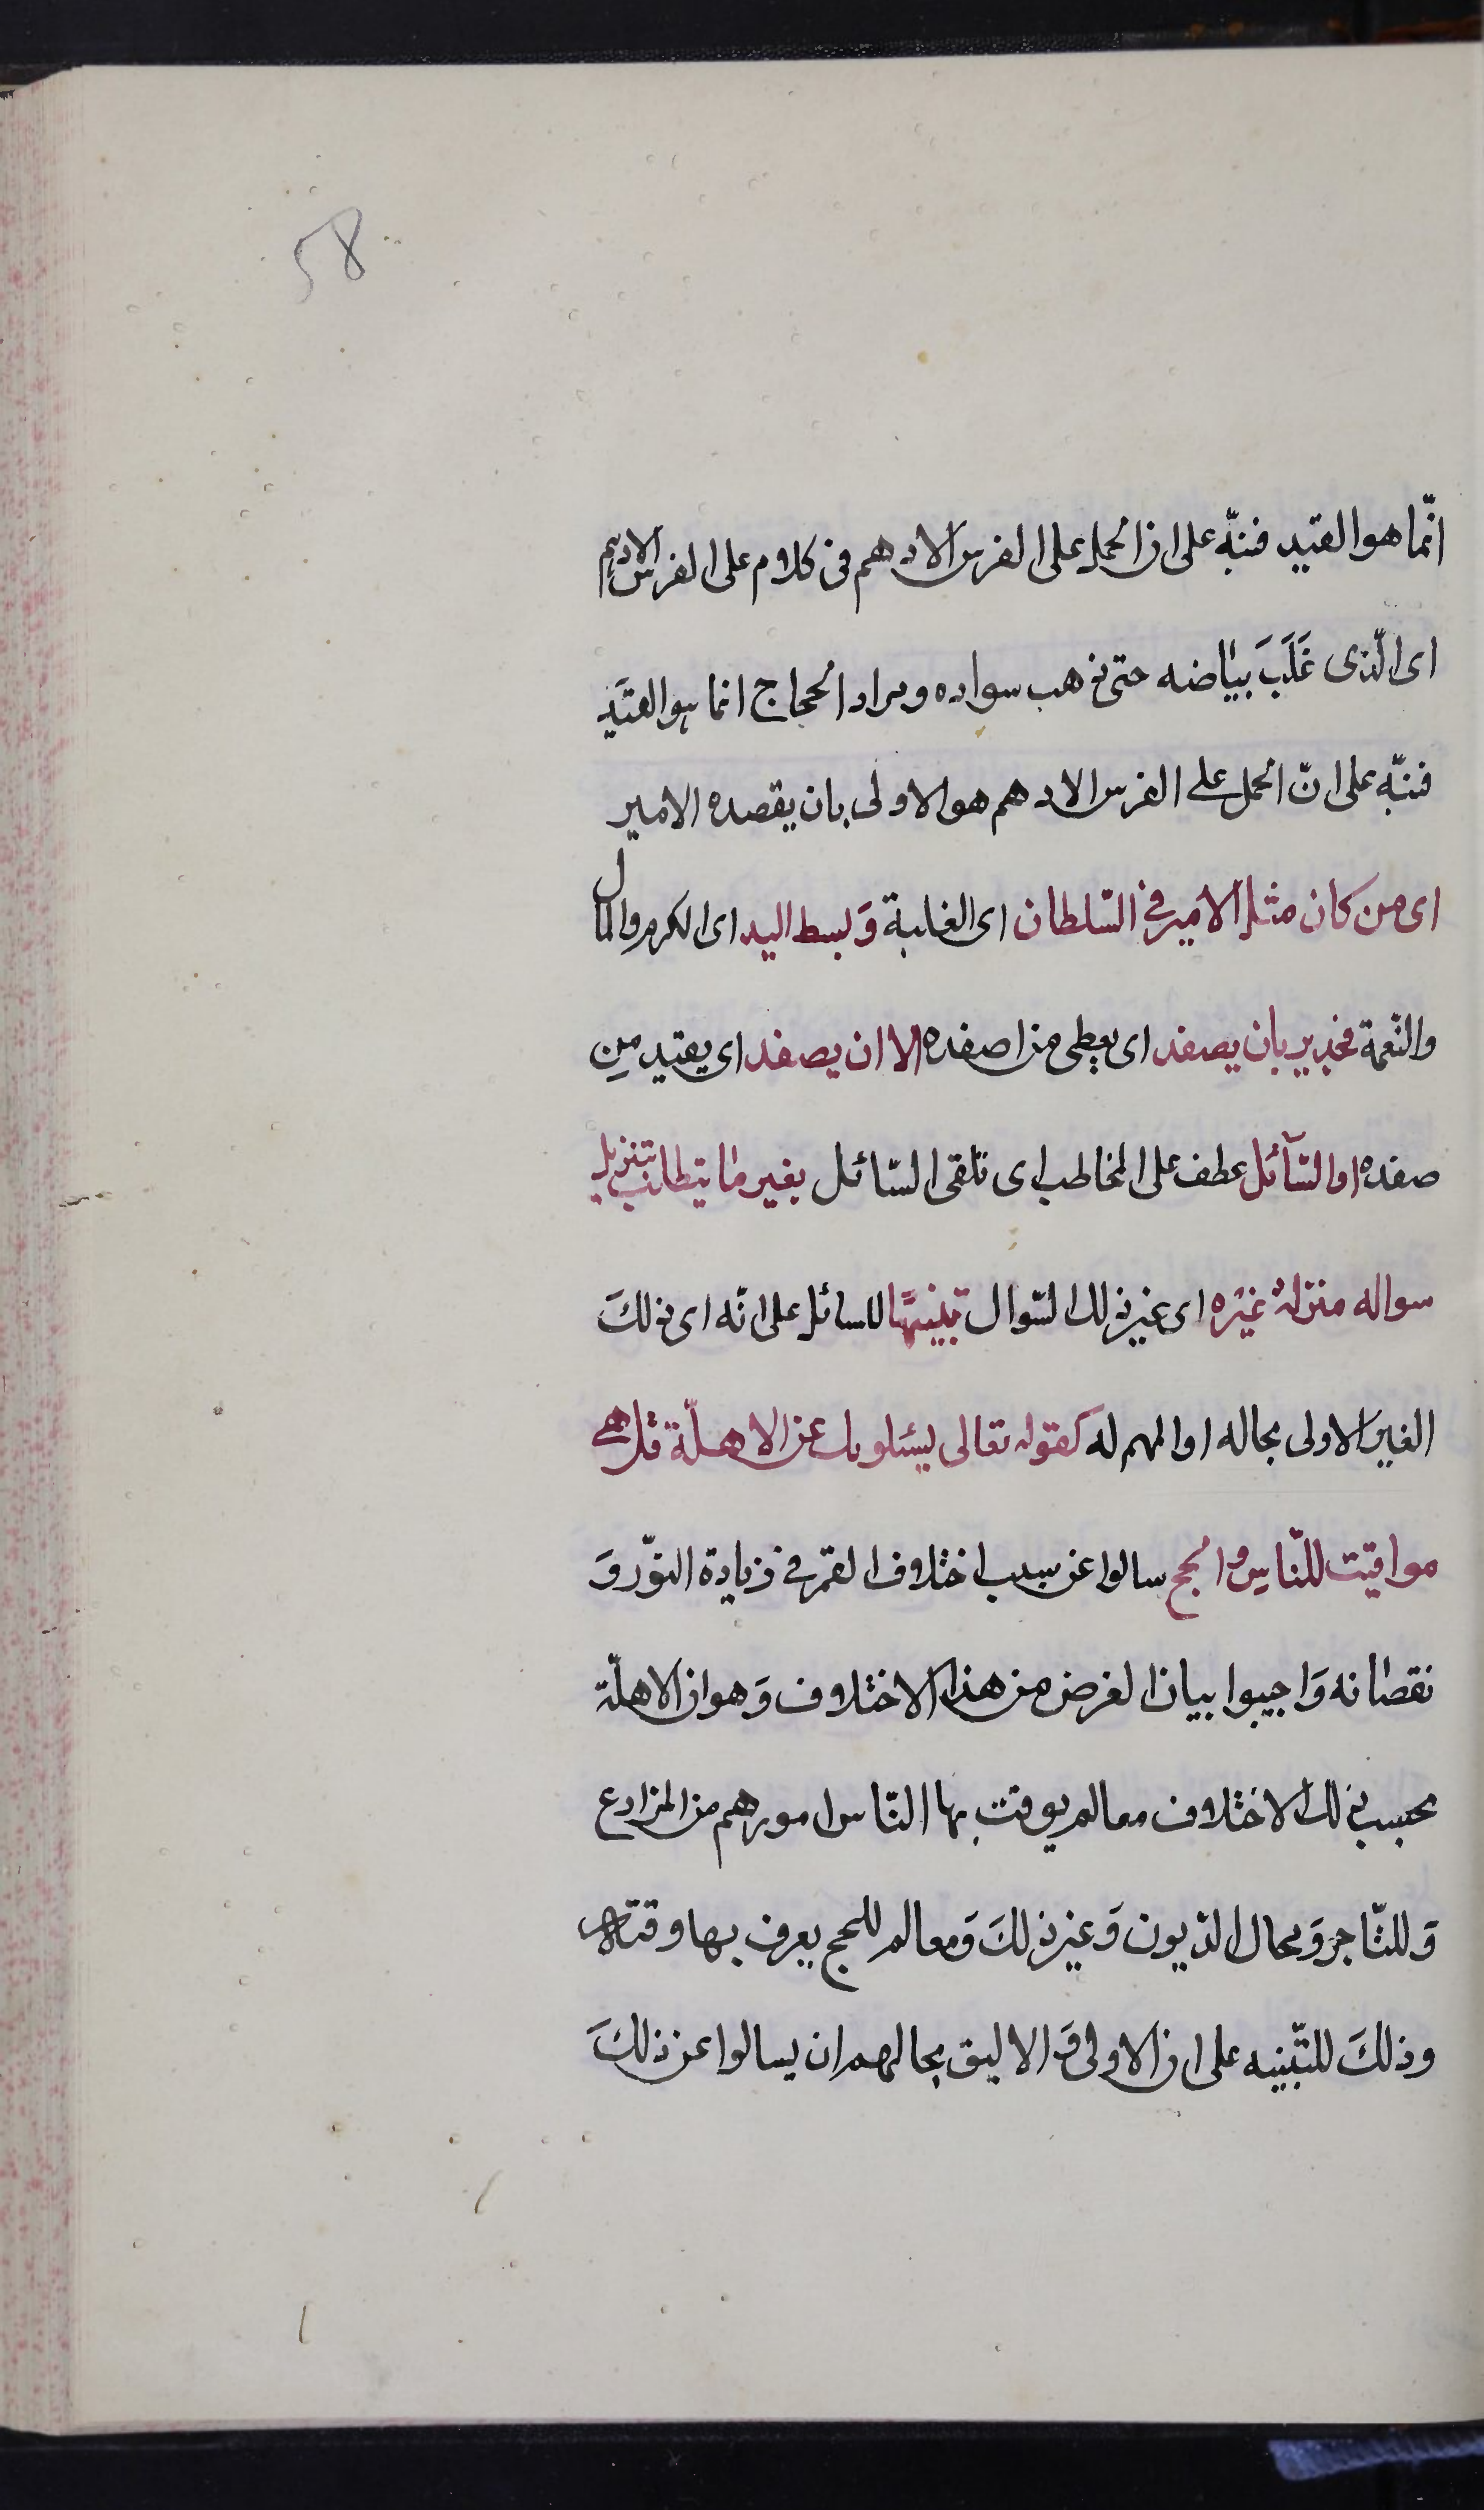 58
انّما هو القید فنبّه علی ان الحمل علی الفرس الادهم فی کلام علی الفرس الادهم
ای الّذی غَلَبَ بیاضه حتی ذهب سواده ومراد الحجاج انما هو القیَد
فنبّه علی انّ الحمل علی الفرس الادهم هو الاولی بان یقصده الامیر
ای من کان مثل الامیر فی السّلطان ای الغلبة وَبسط الید ای الکرم والمال
والنّعمة فجدیر بان یصفد ای یعطی من اصفده الا ان یصفد ای یقید مِن
صفده او السّآئل عطف علی المخاطب ای تلقی السّائل بغیر ما یتطلب بتنزیل
سواله منزلة غیره ای غیر ذلك السّوال تنبیهًا للسائل علی انّه ای ذلكَ
الغیر الاولی بحاله او المهم له کقوله تعالی یسئلونك عن الاهلّة قل هی
مواقیت للنّاسِ والحج سالوا عن سبب اختلاف القمر فی زیادة النّور وَ
نقصانه وَاجیبوا ببیان الغرض من هذا الاختلاف وَهو ان الاهلّة
بحسب ذلك الاختلاف معالم یوقت بها النّاس امورهم من المزارع
وَللتّاجر وَمحال الدّیون وَغیر ذلكَ وَمعالم للحج یعرف بها وقته
وذلكَ للتّنبیه علی ان الاولی وَ الالیق بحالهم ان یسالوا عن ذلكَ